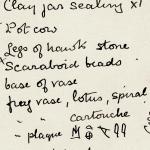 Clay jar sealing x1
Pot cow
Legs of hawk stone
Scaraboid beads
base of vase
frag vase, lotus, spiral
" " cartouche
- plaque